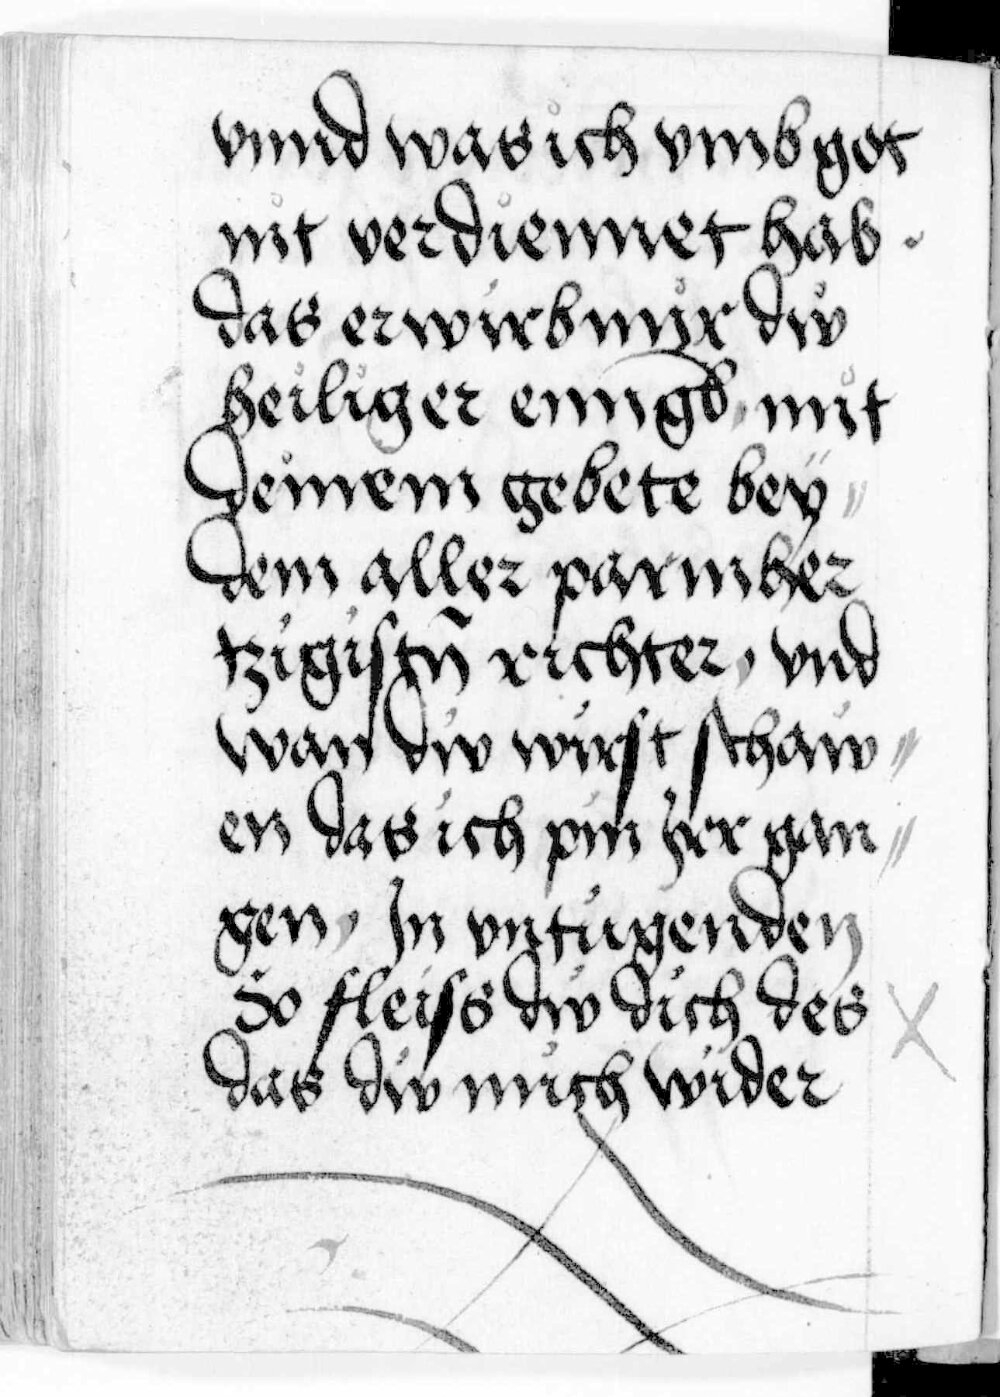 vnnd was ich vmb got
nit verdiennet hab .
das erwirb mir dw
heiliger enngl̅ , mit
deinem gebete bey //
dem aller parmher
tzigistn̄ richter , vnd
wan dw wirst schaw //
en das ich pin jrr gan //
gen , Jn vntugenden
So fleiss dw dich des
das dw mich wider